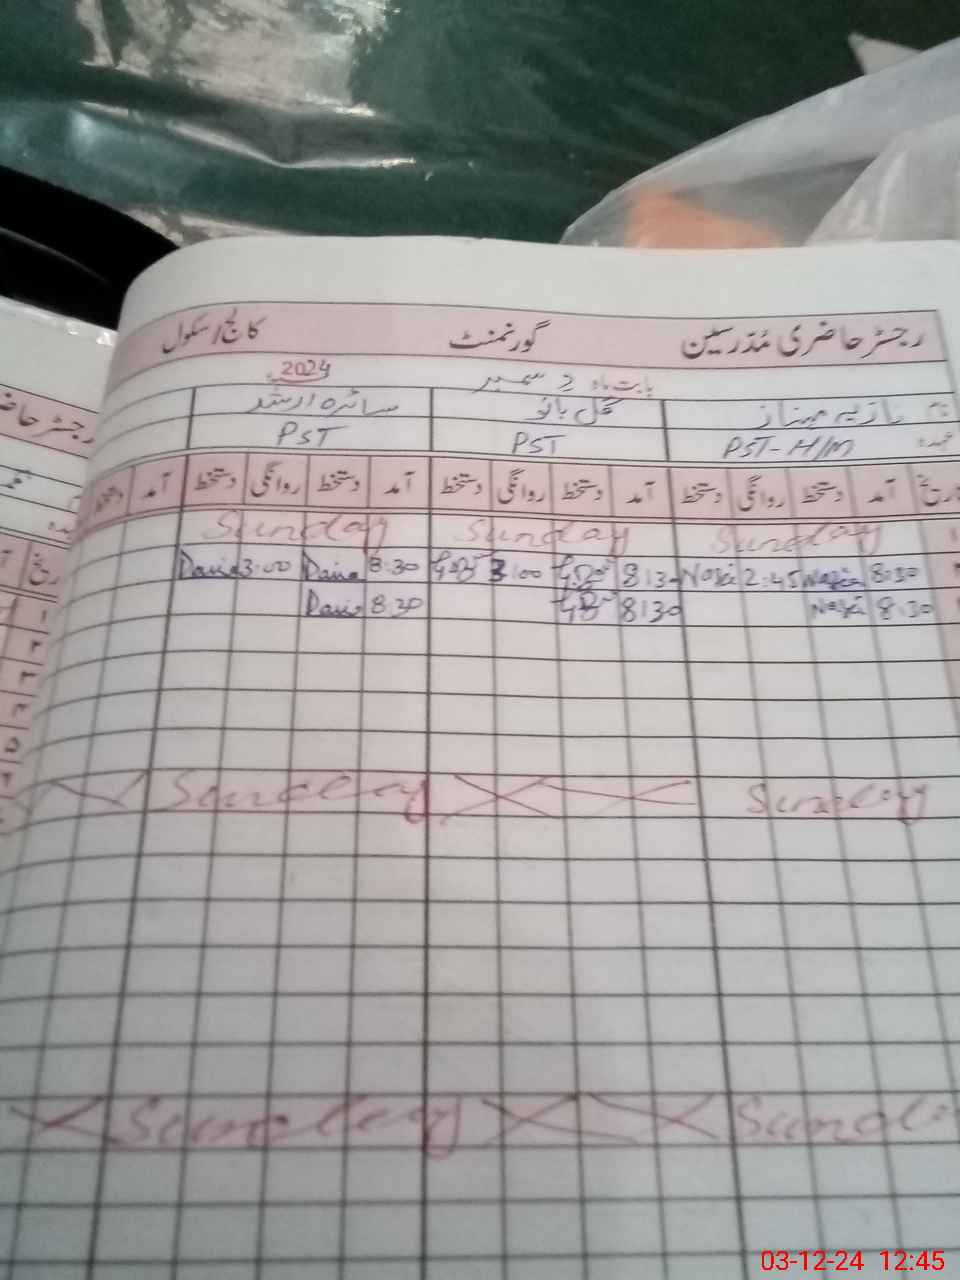 رجسٹر حاضری مُدرسین گورنمنٹ کالج/سکول
بابت ماہ دسمبر 2024
نام نازیہ مہناز گل بانو سائرہ ارشد
عہدہ PST-H/M PST PST
تاریخ آمد دستخط روانگی دستخط آمد دستخط روانگی دستخط آمد دستخط روانگی دستخط آمد دستخط
Sunday Sunday Sunday
8:30 2:45 8:30 3:00 8:30 3:00
8:30 8:30 8:30
Sunday Sunday
Sunday
رجسٹر
تاریخ
۱
۲
۳
۴
۵
03-12-24 12:45